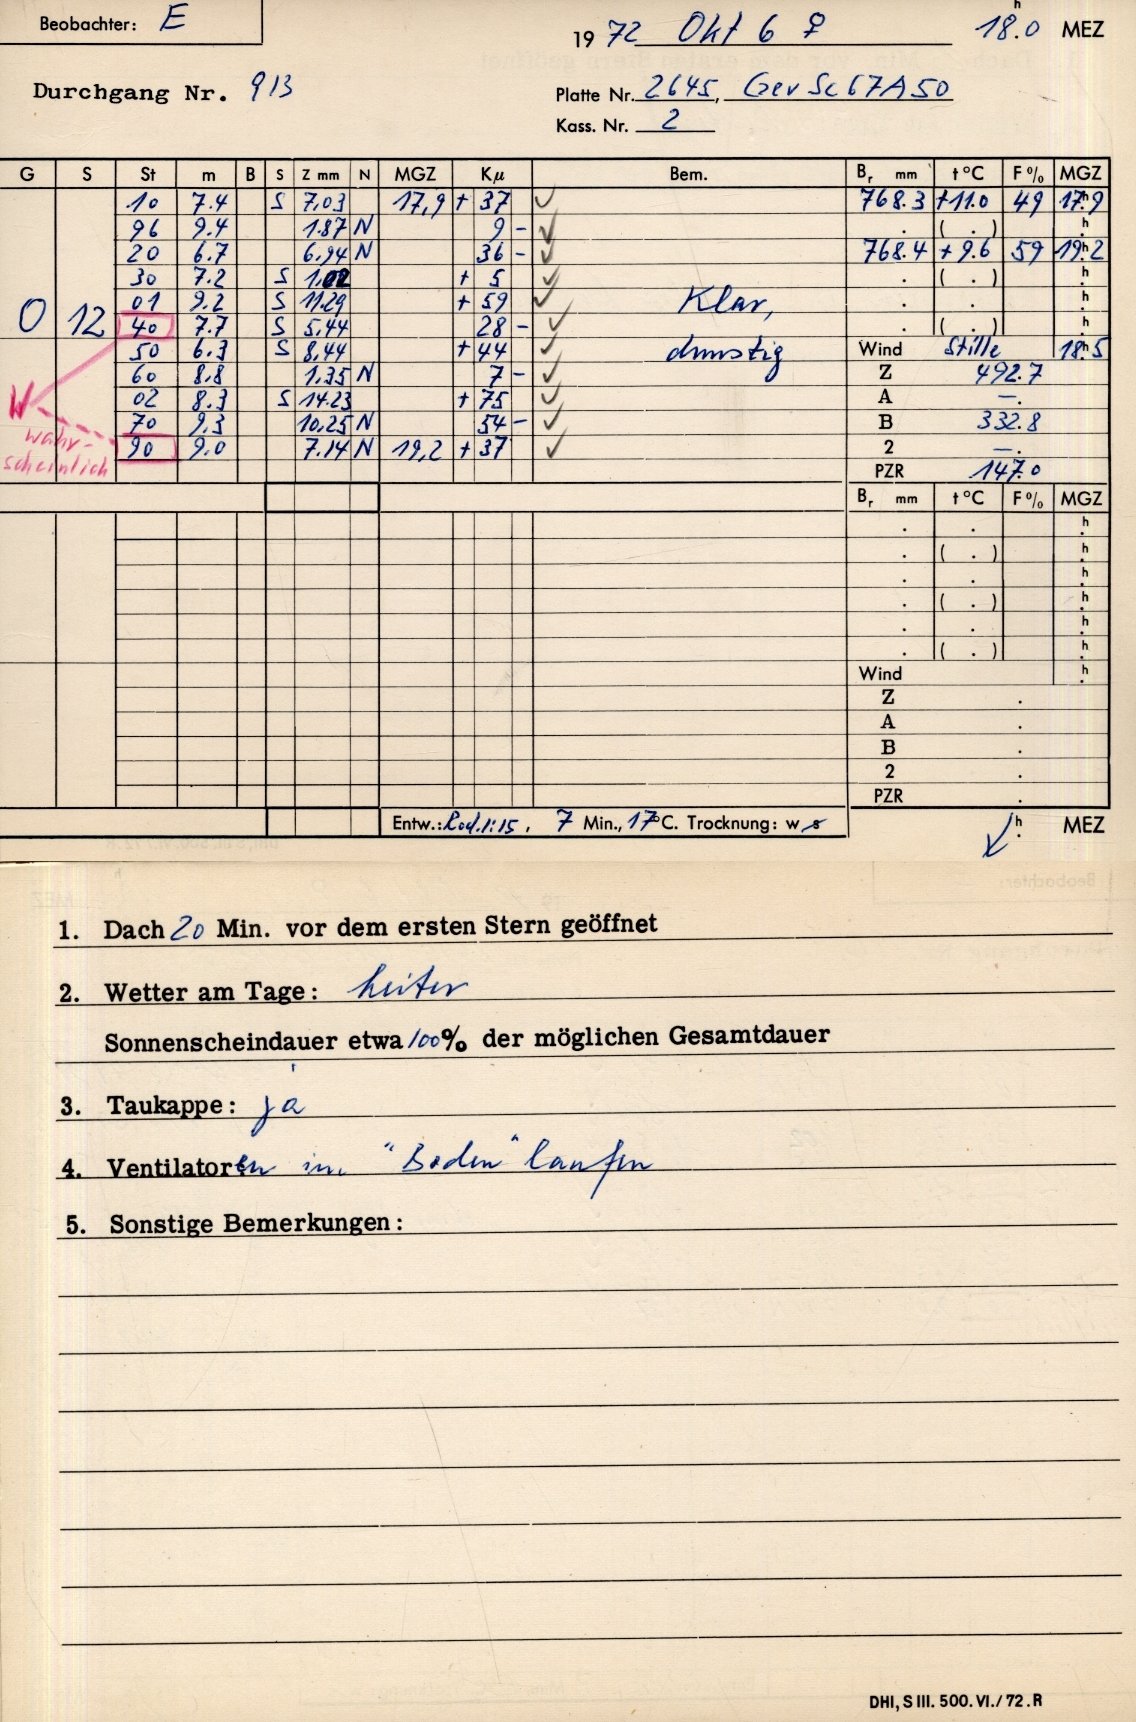 Beobachter: E
1972 Okt 6 ♀ 18.0 h MEZ
Durchgang Nr. 913
Platte Nr. 2645, Gev Sc67A50
Kass. Nr. 2
G S St m B S Z mm N MGZ Kμ Bem. Br mm t °C F % MGZ
10 7.4 S 7.03 17,9 + 37 ✓ 768.3 +11.0 49 17h.9
96 9.4 1.87 N 9 - ✓ . ( . ) h.
20 6.7 6.94 N 36 - ✓ 768.4 + 9.6 59 19h.2
30 7.2 S 1.02 + 5 ✓ . ( . ) h.
01 9.2 S 11.29 + 59 ✓ Klar, . . h.
0 12 40 7.7 S 5.44 28 - ✓ . ( . ) h.
50 6.3 S 8.44 + 44 ✓ dunstig Wind Stille 18h.5
60 8.8 1.35 N 7 - ✓ Z 492.7
W 02 8.3 S 14.23 + 75 ✓ A —.
wahr- 70 9.3 10.25 N 54 - ✓ B 332.8
scheinlich 90 9.0 7.14 N 19,2 + 37 ✓ 2 —.
PZR 147.0
Br mm t °C F % MGZ
. . h.
. ( . ) h.
. . h.
. ( . ) h.
. . h.
. ( . ) h.
Wind h.
Z .
A .
B .
2 .
PZR .
Entw.: Rod.1:15, 7 Min., 17°C. Trocknung: w s
h. MEZ
1. Dach 20 Min. vor dem ersten Stern geöffnet
2. Wetter am Tage: heiter
Sonnenscheindauer etwa 100% der möglichen Gesamtdauer
3. Taukappe: ja
4. Ventilatoren im "Boden" laufen
5. Sonstige Bemerkungen:
DHI, S III. 500. VI./72. R